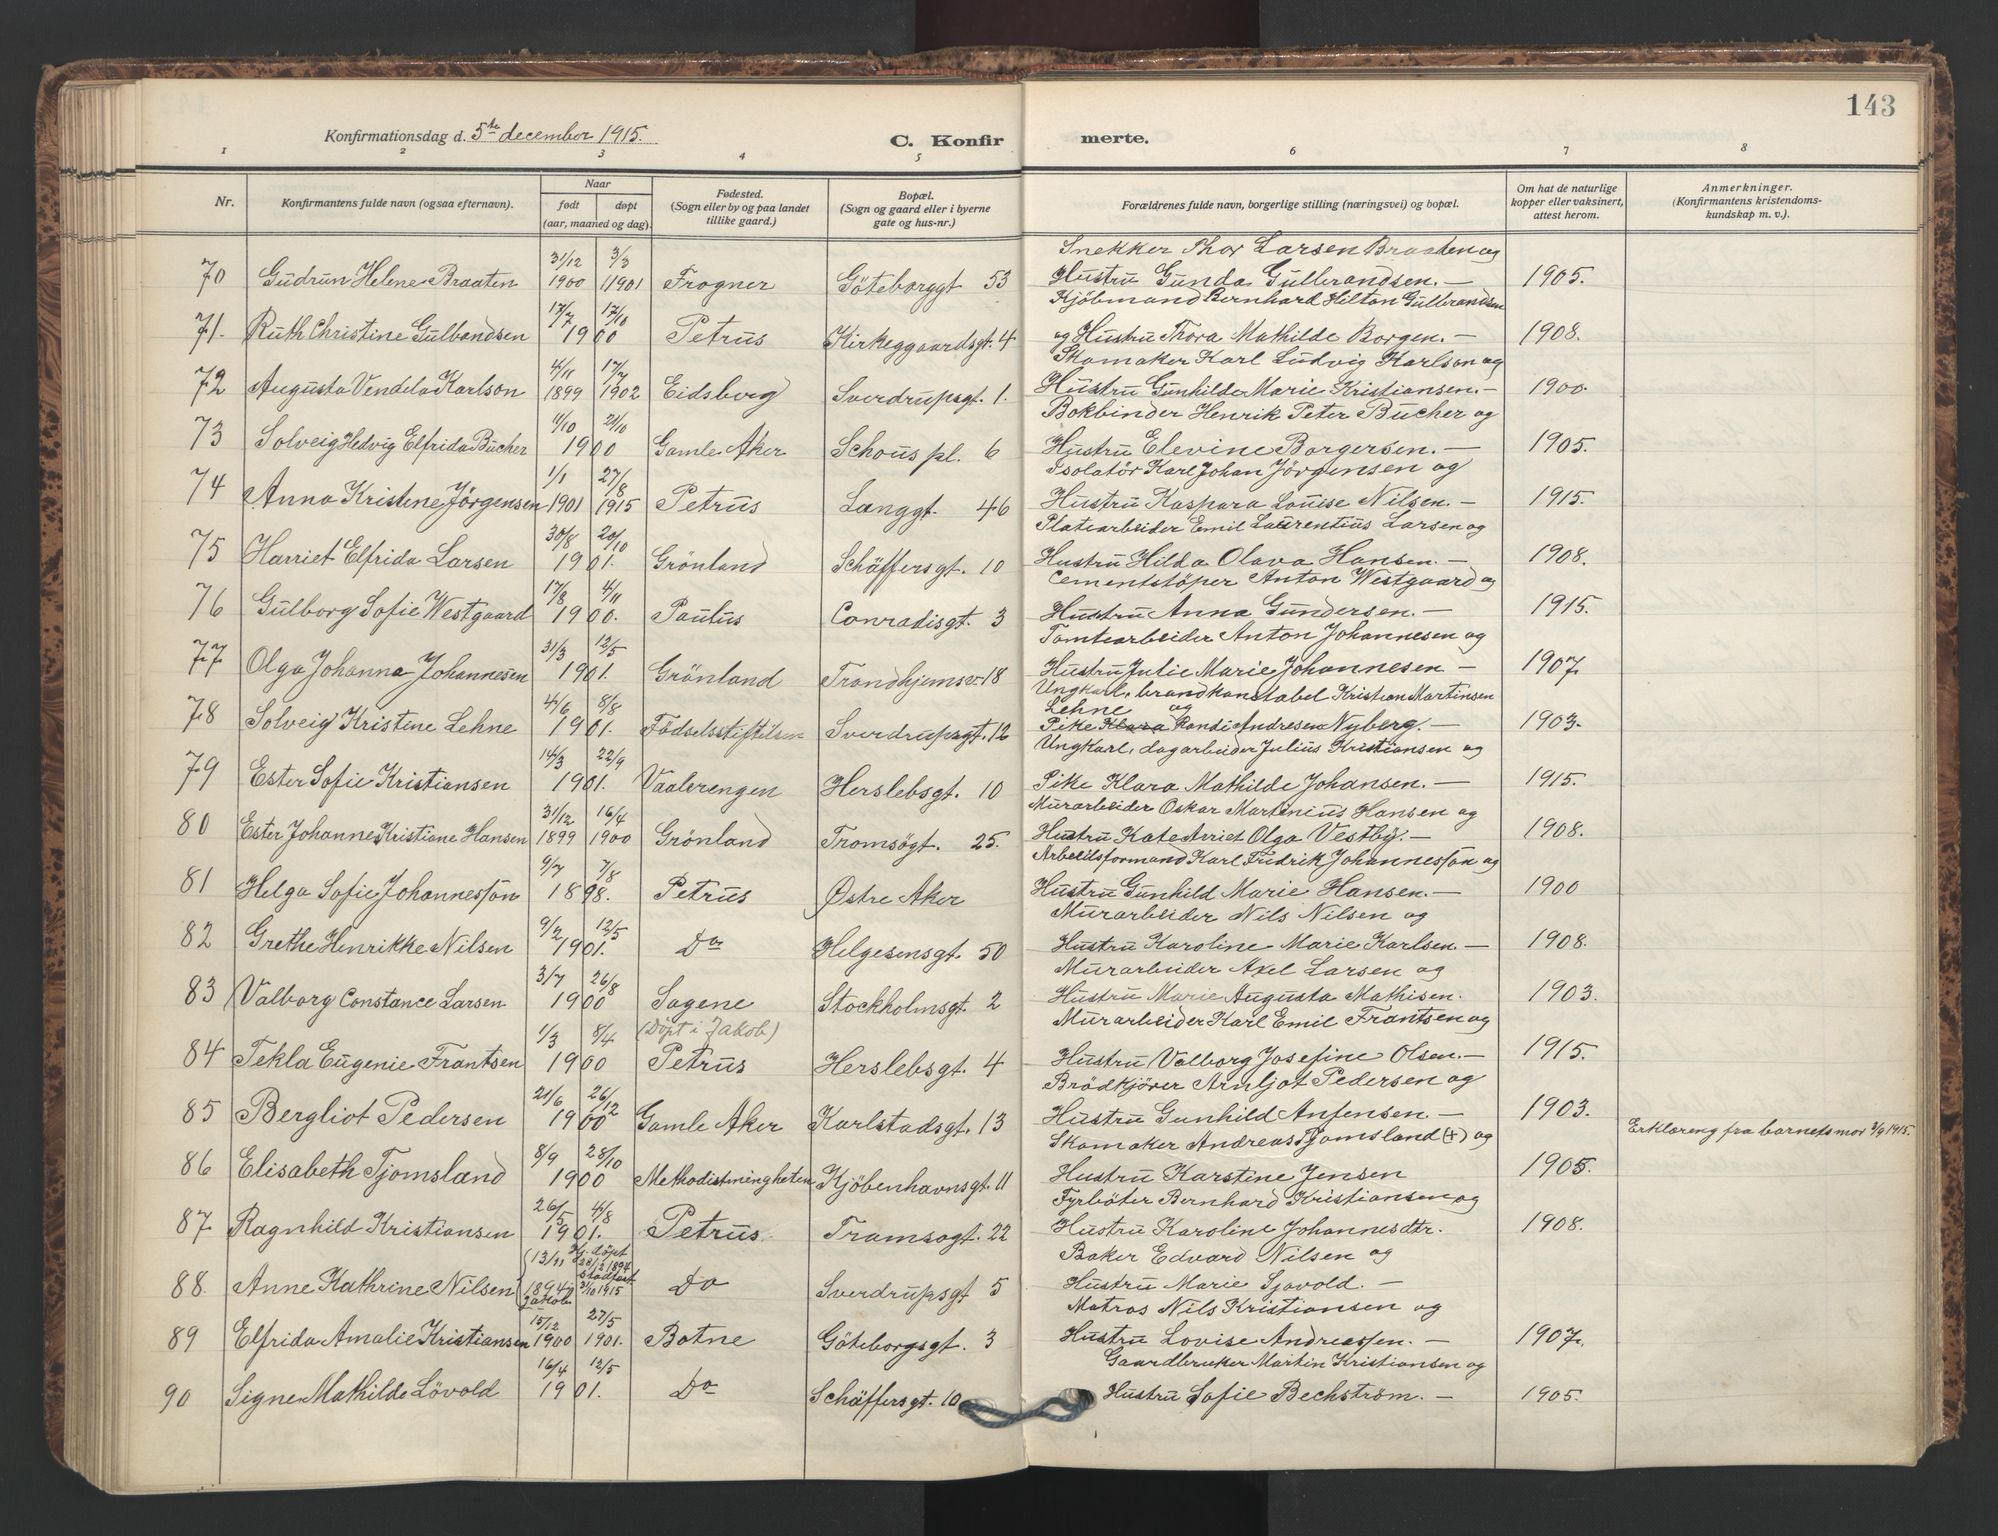 143
Konfirmationsdag d. 5te december 1915.
C. Konfirmerte.
1 2 3 4 5 6 7 8
Nr. Konfirmantens fulde navn (ogsaa efternavn). Naar født døpt (aar, maaned og dag). Fødested. (Sogn eller by og paa landet tillike gaard.) Bopæl. (Sogn og gaard eller i byerne gate og hus-nr.) Forældrenes fulde navn, borgerlige stilling (næringsvei) og bopæl. Om hat de naturlige kopper eller vaksinert, attest herom. Anmerkninger. (Konfirmantens kristendomskundskap m. v.).
Snekker Thor Larsen Braaten og
70 Gudrun Helene Braaten 31/12 1900 3/3 1901 Frogner Göteborggt 53 Hustru Gunda Gulbrandsen. — 1905.
Kjöbmand Bernhard Hilton Gulbrandsen
71. Ruth Christine Gulbandsen 17/7 17/10 1900 Petrus Kirkeggaardsgt. 4 og Hustru Thora Mathilde Borgen. — 1908.
Skomaker Karl Ludvig Karlson og
72 Augusta Vendela Karlson 4/11 1899 17/7 1902 Eidsberg Sverdrupsgt. 1. Hustru Gunhilda Marie Kristiansen. — 1900.
Bokbinder Henrik Peter Bucher og
73 Solveig Hedvig Elfrida Bucher 11/10 21/10 1900 Gamle Aker Schous pl. 6 Hustru Elevine Borgersen. — 1905.
Isolatör Karl Johan Jörgensen og
74 Anna Kristine Jörgensen 1/1 1901 27/8 1915 Petrus Langgt. 46 Hustru Kaspara Louise Nilsen. — 1915.
Platearbeider Emil Laurentius Larsen og
75 Harriet Elfrida Larsen 30/8 20/10 1901. Grönland Schäffersgt. 10 Hustru Hilda Olava Hansen. — 1908.
Cementstöper Anton Westgaard og
76 Gulborg Sofie Westgaard 17/8 4/11 1900. Paulus Conradisgt. 3 Hustru Anna Gundersen. — 1915.
Tomtearbeider Anton Johannesen og
77 Olga Johanna Johannesen 31/3 12/5 1901. Grönland Trondhjemsv. 18 Hustru Julie Marie Johannesen — 1907.
Ungkarl, brandkonstabel Kristian Martinsen
Lehne og
78 Solveig Kristine Lehne 4/6 8/8 1901. Födselsstiftelsen Sverdrupsgt. 12 Pike Klara Randi Andresen Nyberg. — 1903.
Ungkarl, dagarbeider Julius Kristiansen og
79 Ester Sofie Kristiansen 14/3 22/9 1901. Vaalerengen Herslebsgt. 10 Pike Klara Mathilde Johansen. — 1915.
Murarbeider Oskar Martenius Hansen og
80 Ester Johanne Kristiane Hansen 31/12 1899 16/4 1900 Grönland Tromsögt. 25. Hustru Katedriet Olga Vestby. — 1908.
Arbeidsformand Karl Fredrik Johannesson og
81 Helga Sofie Johannesson 9/7 7/8 1898. Petrus Østre Aker Hustru Gunhild Marie Hansen. — 1900
Murarbeider Nils Nilsen og
82 Grethe Henrikke Nilsen 9/2 12/5 1901. Do Helgesensgt. 50 Hustru Karoline Marie Karlsen. — 1908.
Murarbeider Axel Larsen og
83 Valborg Constance Larsen 3/7 26/8 1900 Sagene (Döpt i Jakob) Stockholmsgt. 2 Hustru Marie Augusta Mathisen. 1903.
Murarbeider Karl Emil Frantsen og
84 Tekla Eugenie Frantsen 1/3 8/4 1900 Petrus Herslebsgt. 4 Hustru Valborg Josefine Olsen. — 1915.
Brödkjörer Arnljot Pedersen og
85 Bergliot Pedersen 21/6 26/12 1900 Gamle Aker Karlstadsgt. 13 Hustru Gunhild Anfensen. — 1903.
Skomaker Andreas Tjomsland (+) og Erklæreng fra barnets mor 3/9 1915.
86 Elisabeth Tjomsland 8/9 28/10 1900 Methodistmenigheten Kjöbenhavnsgt. 11 Hustru Karstine Jensen 1905.
Fyrböter Bernhard Kristiansen og
87 Ragnhild Kristiansen 26/5 4/8 1901. Petrus. Tromsøgt. 22 Hustru Karoline Johannesdtr. 1908.
Baker Edvard Nilsen og
88. Anne Kathrine Nilsen (13/11 1894) Jakob Hj. döpt 28/12 1894 stadfæst 31/10 1915 Do Sverdrupsgt 5 Hustru Marie Sjøvold. —
Matros Nils Kristiansen og
89 Elfrida Amalie Kristiansen 15/12 1900 27/5 1901. Botne Göteborgsgt. 3 Hustru Lovise Andreassen. — 1907.
Gaardbruker Martin Kristiansen og
90 Signe Mathilde Lövold 16/4 12/5 1901. Do Schäffersgt. 10 Hustru Sofie Bechström. — 1905.